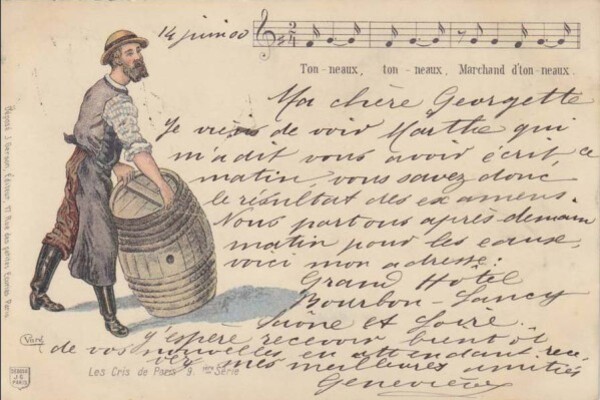 14 juin 00
2
4
Ton-neaux, ton-neaux, Marchand d'ton-neaux.
Ma chère Georgette
Je viens de voir Marthe qui
m'a dit vous avoir écrit, ce
matin, vous savez donc
le résultat des examens.
Nous partons après demain
matin pour les eaux,
voici mon adresse:
Grand Hôtel
Bourbon-Lancy
Saône et Loire.
J'espère recevoir bientôt
de vos nouvelles en attendant rece-
vez mes meilleures amitiés
Geneviève
Les Cris de Paris 9. Série
Déposé J. Éditeur, Rue des Paris
DÉPOSÉ
J.G.
PARIS